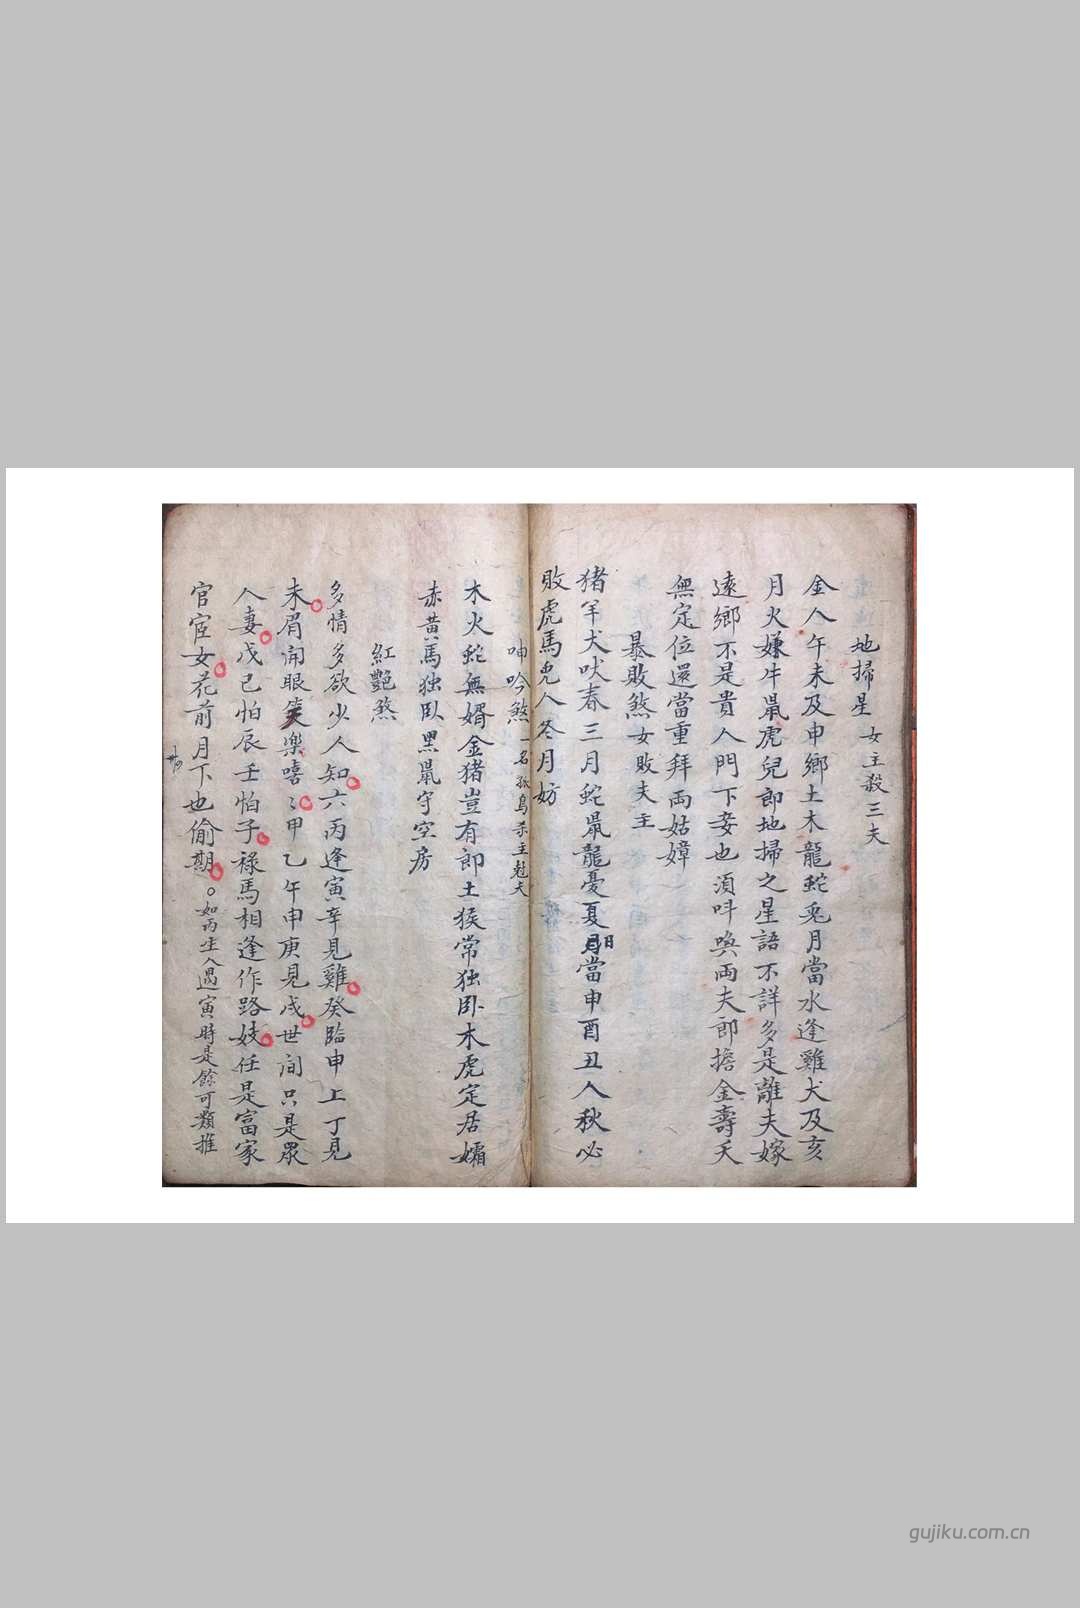 地掃星 女主殺三夫
金人午未及申鄉土木龍蛇兎月當水逢雞犬及亥
月火嫌牛鼠虎兒郎地掃之星語不詳多是離夫嫁
遠鄉不是貴人門下妾也須呌喚両夫郎擔金壽夭
無定位還當重拜両姑嫜
暴敗煞 女敗夫主
猪羊犬吠春三月蛇鼠龍憂夏月當申酉丑人秋必
敗虎馬兎人冬月妨
呻吟煞 一名孤鳥杀主尅夫
木火蛇無婿金猪豈有郎土猴常独卧木虎定居孀
赤黃馬独臥黑鼠守空房
紅艷煞
多情多欲少人知六丙逢寅辛見雞癸臨申上丁見
未眉開眼笑樂嘻〻甲乙午申庚見戌世间只是眾
人妻戊己怕辰壬怕子祿馬相逢作路妓任是富家
官宦女花前月下也偷期。如丙生人遇寅時是餘可類推
gujiku.com.cn